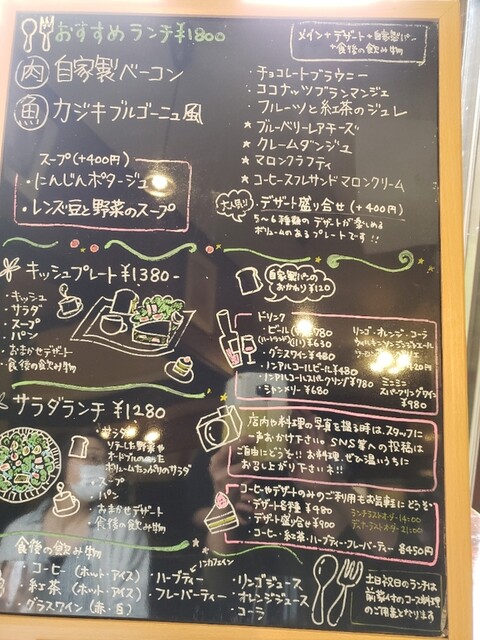 おすすめランチ¥1800
メイン+デザート+自家製パン
+食後の飲み物
肉 自家製ベーコン
魚 カジキブルゴーニュ風
スープ(+400円)
・にんじんポタージュ
・レンズ豆と野菜のスープ
・チョコレートブラウニー
・ココナッツブランマンジェ
・フルーツと紅茶のジュレ
★ブルーベリーレアチーズ
★クレームダンジュ
★マロンクラフティ
★コーヒースフレサンド マロンクリーム
大人気!! ・デザート盛り合せ(+400円)
5〜6種類のデザートが楽しめる
ボリュームのあるプレートです!!
キッシュプレート¥1380-
・キッシュ
・サラダ
・スープ
・パン
・おまかせデザート
・食後の飲み物
自家製パンの
おかわり¥120
ドリンク
・ビール
(ハートランド) (小)¥630
・グラスワイン¥480
・ノンアルコールビール¥480
・ノンアルコールスパークリング¥780
・シャンメリー¥680
リンゴ・オレンジ・コーラ
ミニミニ
スパークリングワイン
¥980
サラダランチ ¥1280
・サラダ
ソテーした野菜や
オードブルのった
ボリュームたっぷりのサラダ
・スープ
・パン
・おまかせデザート
・食後の飲み物
店内や料理の写真を撮る時は、スタッフに
一声おかけ下さい。SNS等への投稿は
ご自由にどうぞ!! お料理、ぜひ温いうちに
お召し上がり下さいネ!!
コーヒーやデザートのみのご利用もお気軽にどうぞ
・デザート各種 ¥480
・デザート盛り合せ¥900
・コーヒー・紅茶・ハーブティー・フレーバーティー 各450円
ランチラストオーダー14:00
ディナーラストオーダー21:00
食後の飲み物
・コーヒー (ホット・アイス)
・紅茶 (ホット・アイス)
・グラスワイン (赤・白)
ノンカフェイン
・ハーブティー
・フレーバーティー
・リンゴジュース
・オレンジジュース
・コーラ
土日祝日のランチは
前菜付のコース料理の
ご用意となります